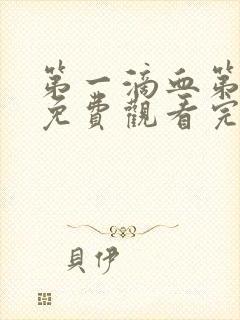 第一滴血第
免費觀看完
貝伊